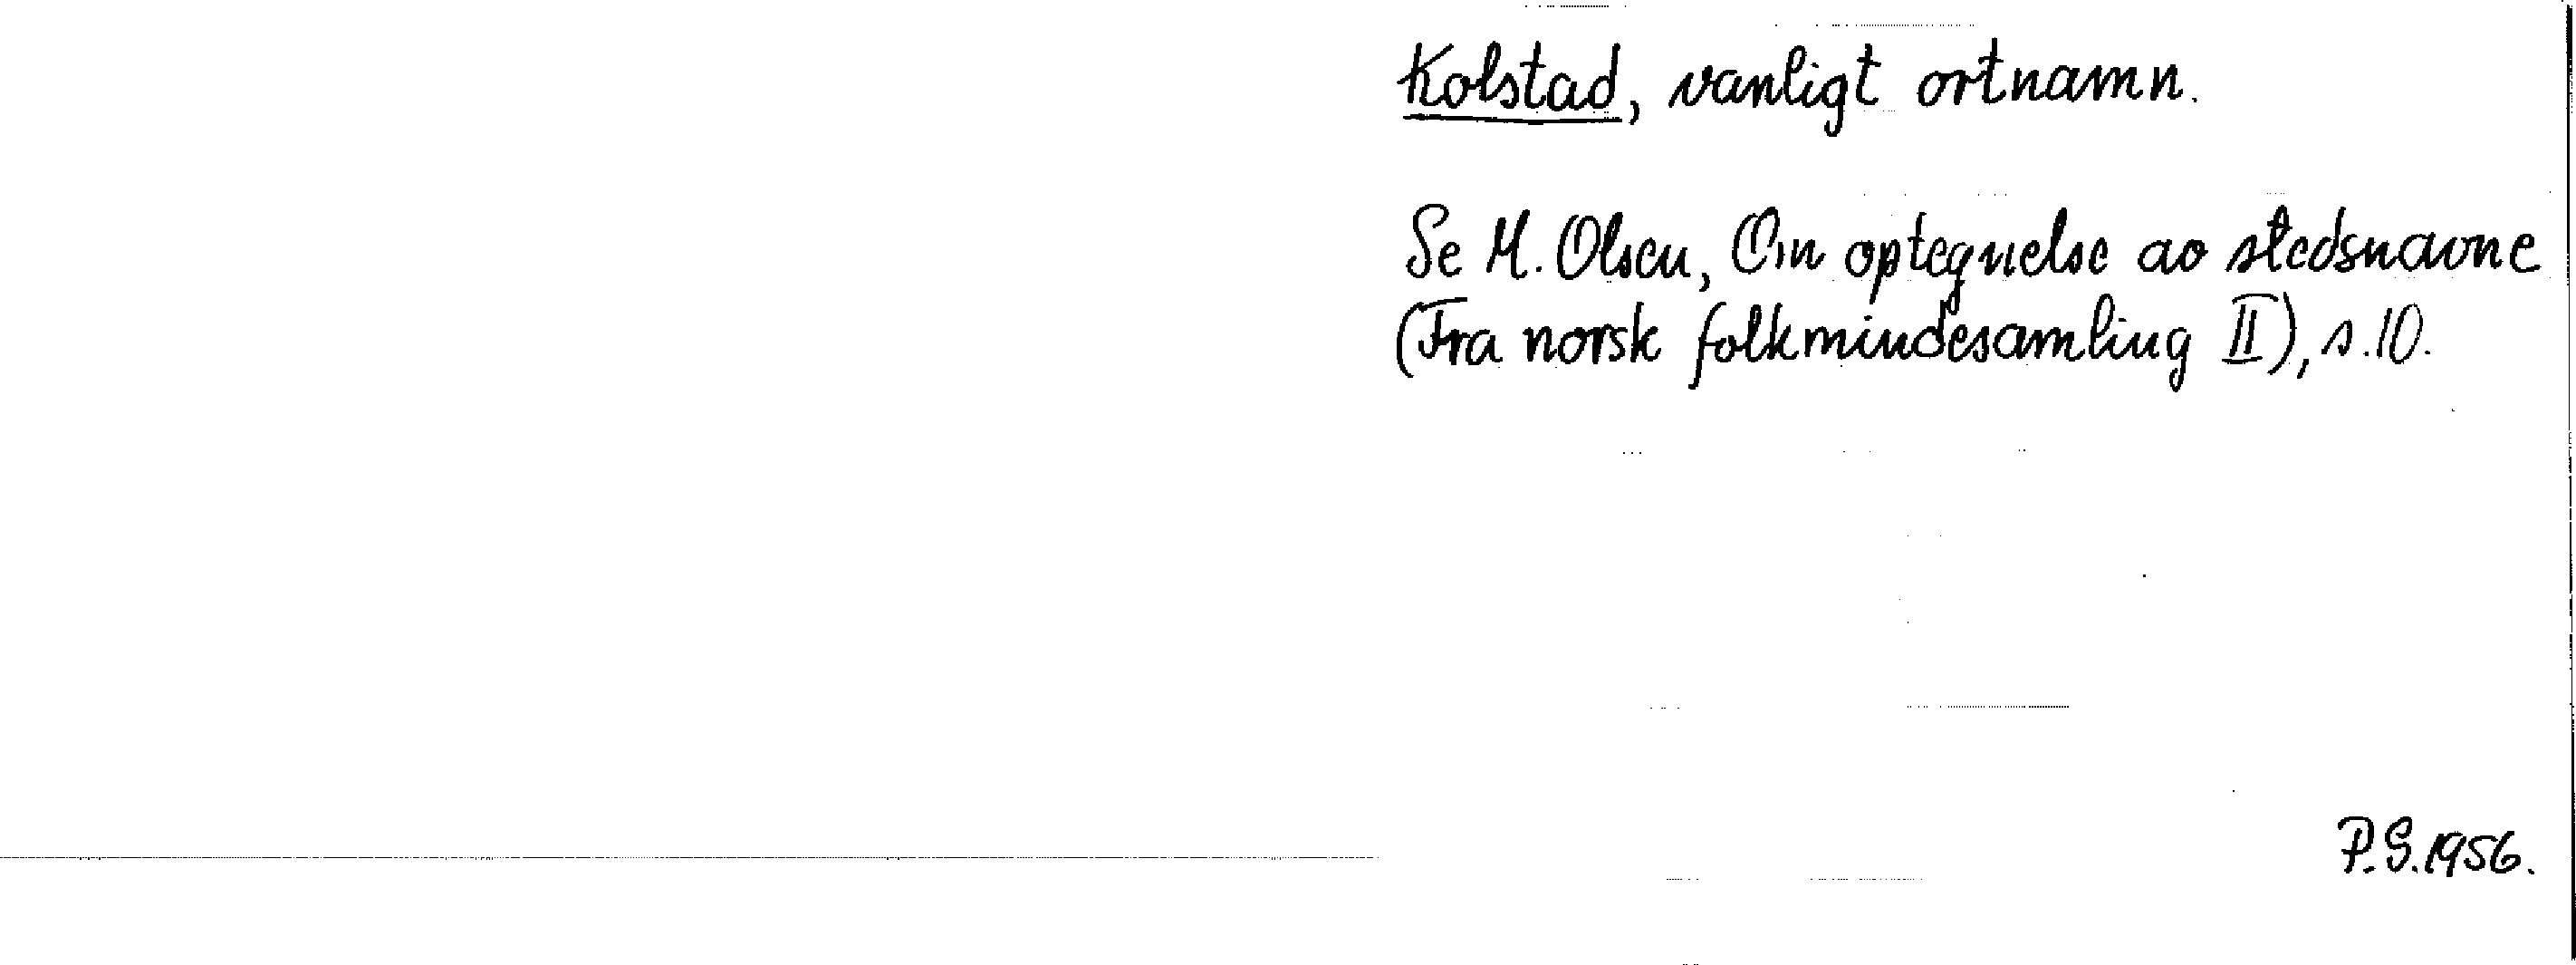 Kolstad, vanligt ortnamn.
Se M. Olsen, Om optegnelse av stedsnavne
(Fra norsk folkmindesamling II), s. 10.
P.S. 1956.